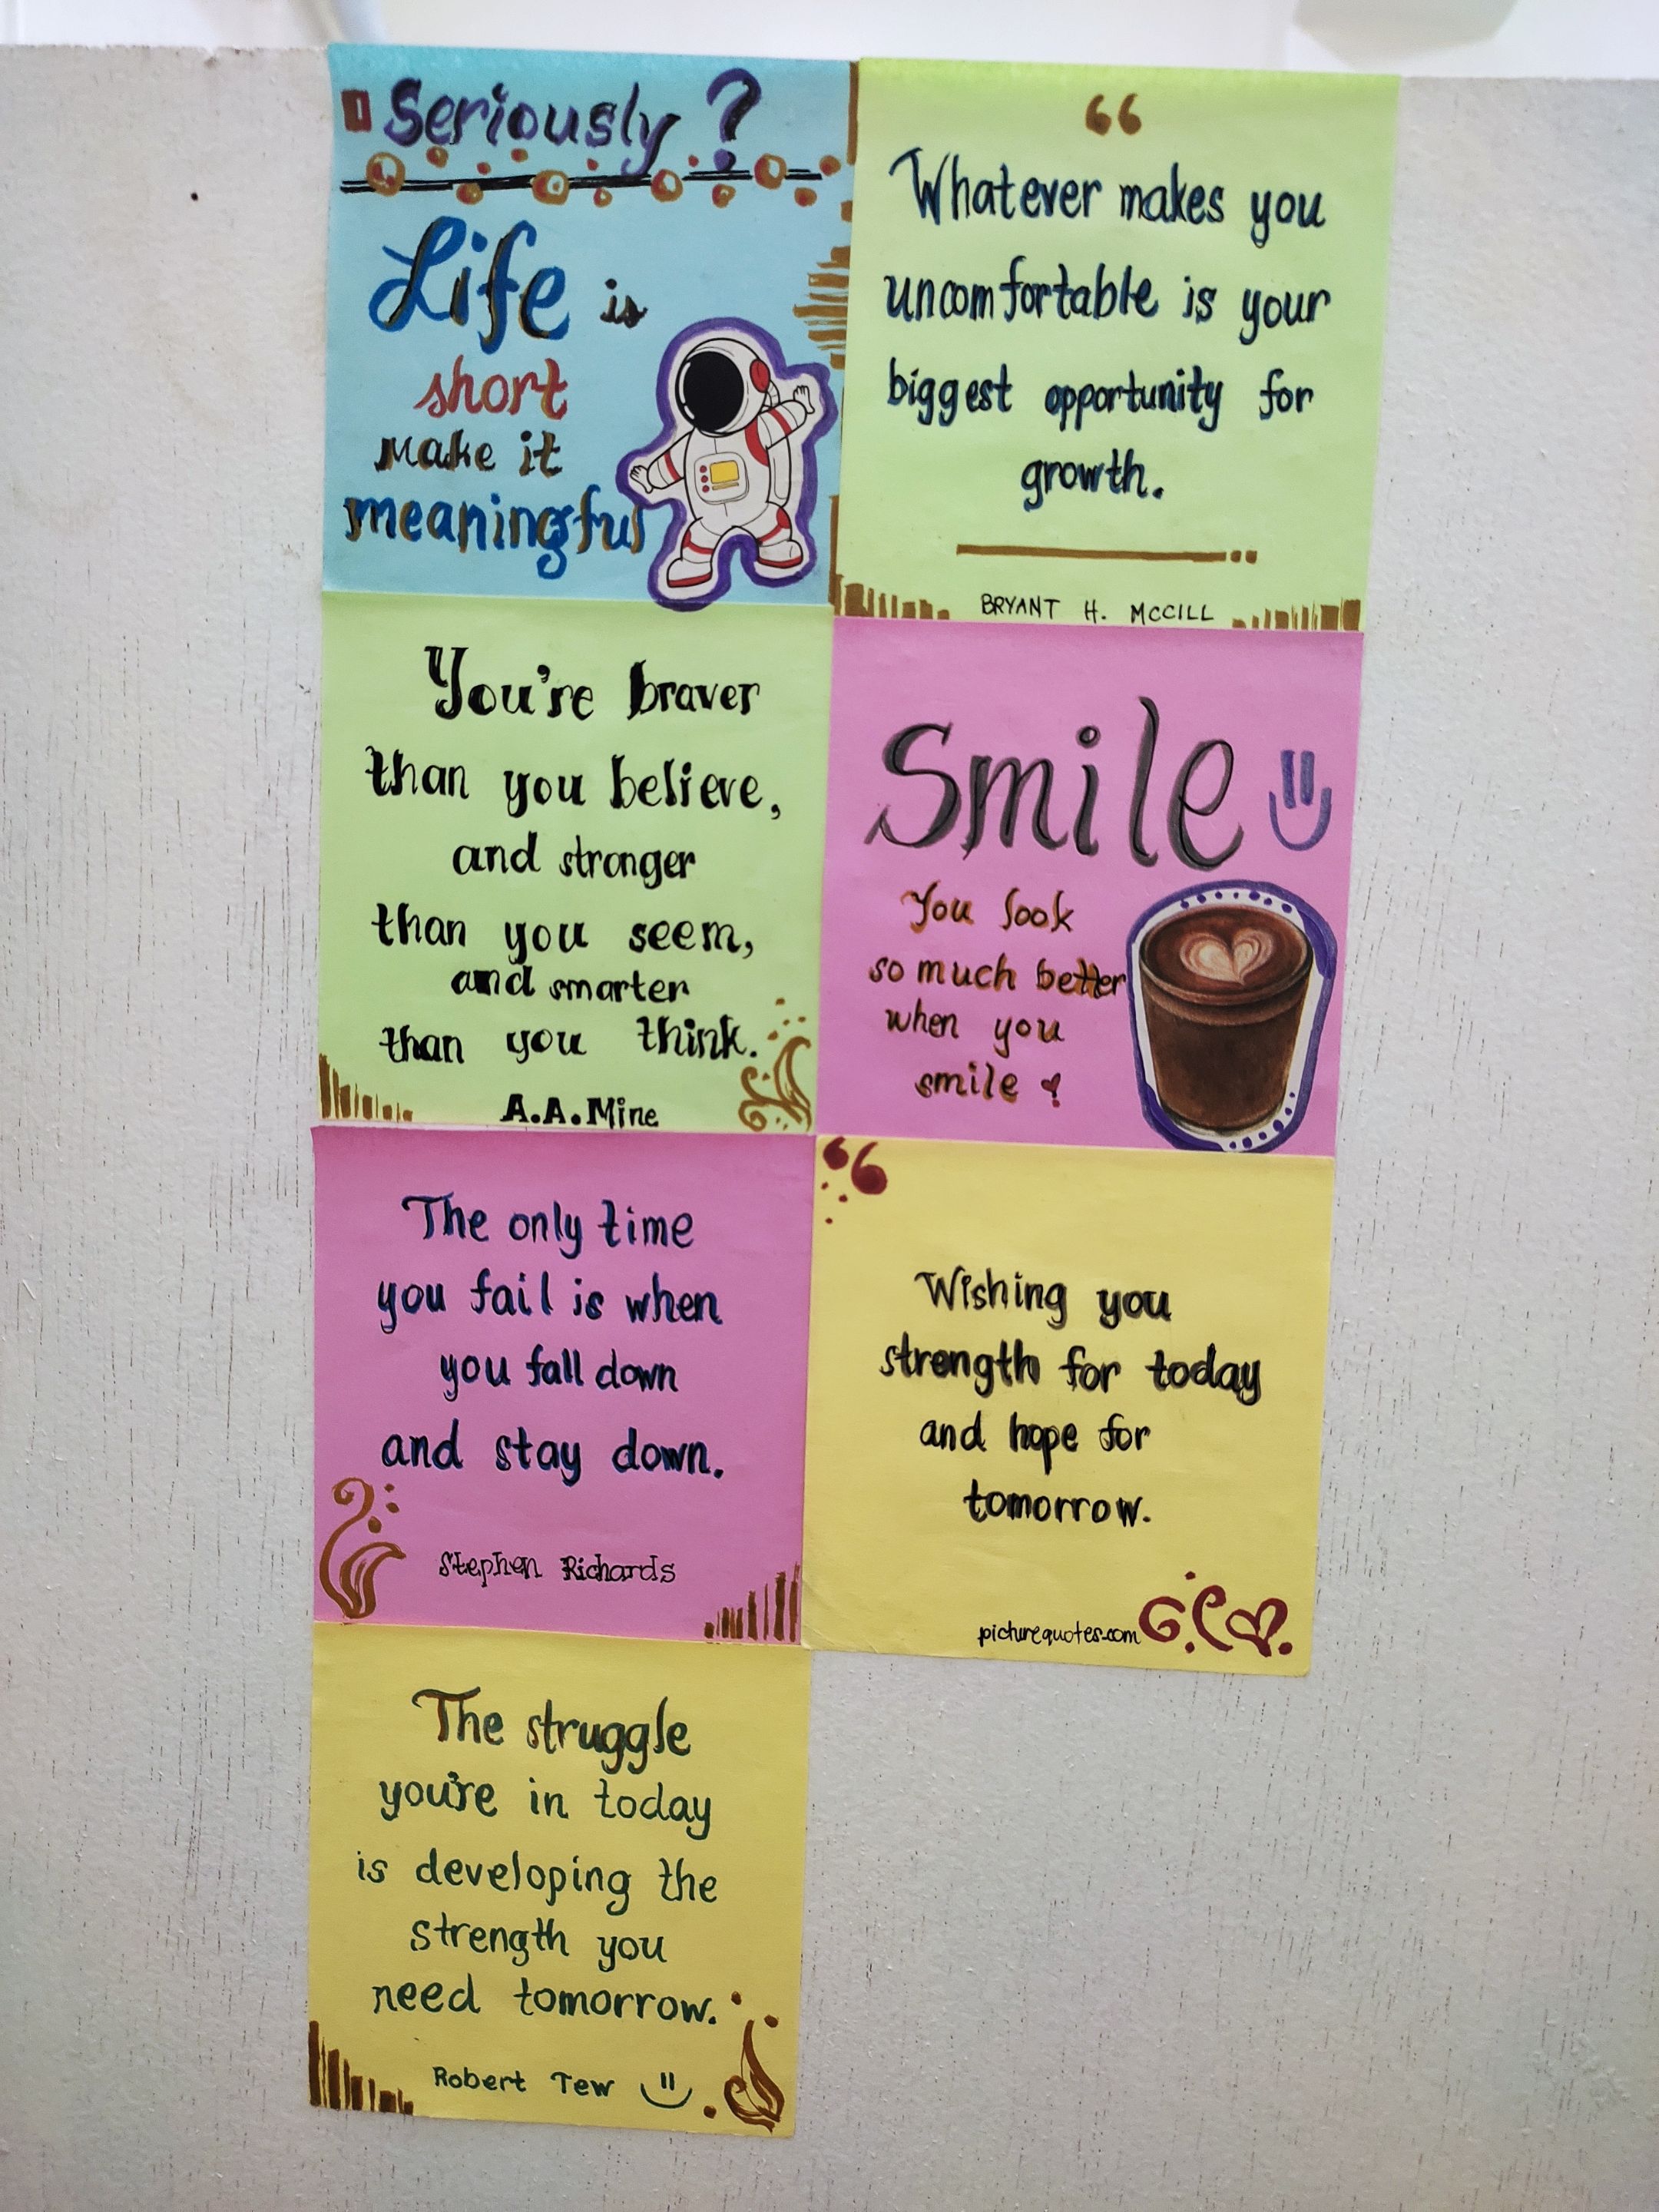 Seriously ?
Life is
short
Make it
meaningful
“
Whatever makes you
uncomfortable is your
biggest opportunity for
growth.
BRYANT H. MCCILL
You're braver
than you believe,
and stronger
than you seem,
and smarter
than you think.
A.A.Mine
Smile
You look
so much better
when you
smile
The only time
you fail is when
you fall down
and stay down.
Stephen Richards
“
Wishing you
strength for today
and hope for
tomorrow.
picturequotes.com
The struggle
you're in today
is developing the
strength you
need tomorrow.
Robert Tew